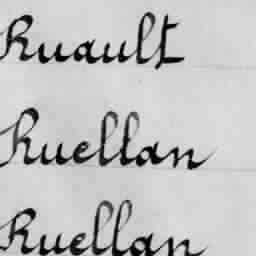 Ruault
Ruellan
Ruellan